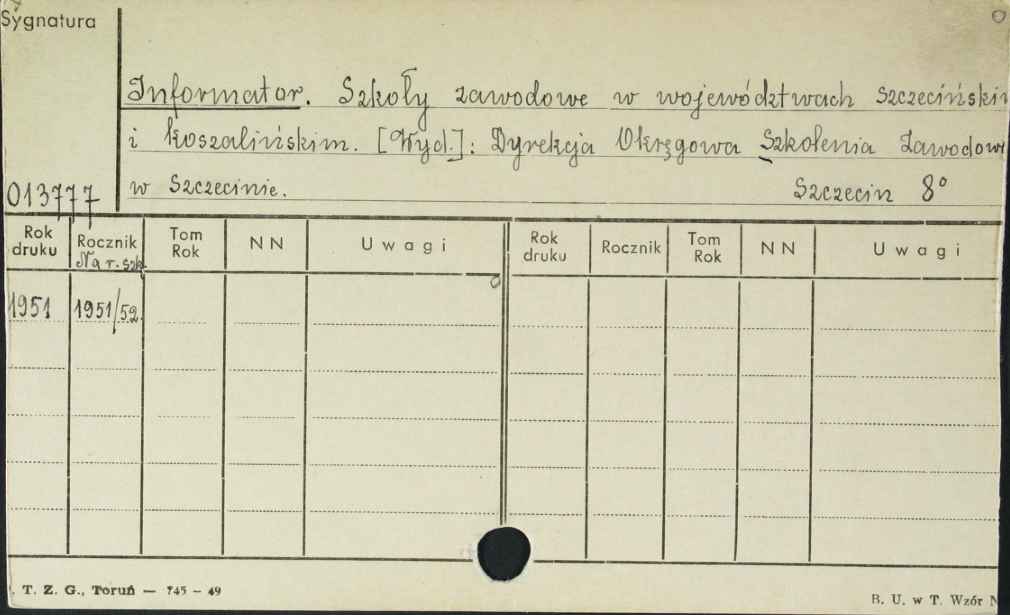 Sygnatura
Informator. Szkoły zawodowe w województwach szczecińskim
i koszalińskim. [Wyd.]: Dyrekcja Okręgowa Szkolenia Zawodow
w Szczecinie. Szczecin 8°
013777
Rok druku Rocznik Na r. szk. Tom Rok NN Uwagi Rok druku Rocznik Tom Rok NN Uwagi
1951 1951/52.
. T. Z. G., Toruń — 745 - 49
B. U. w T. Wzór N